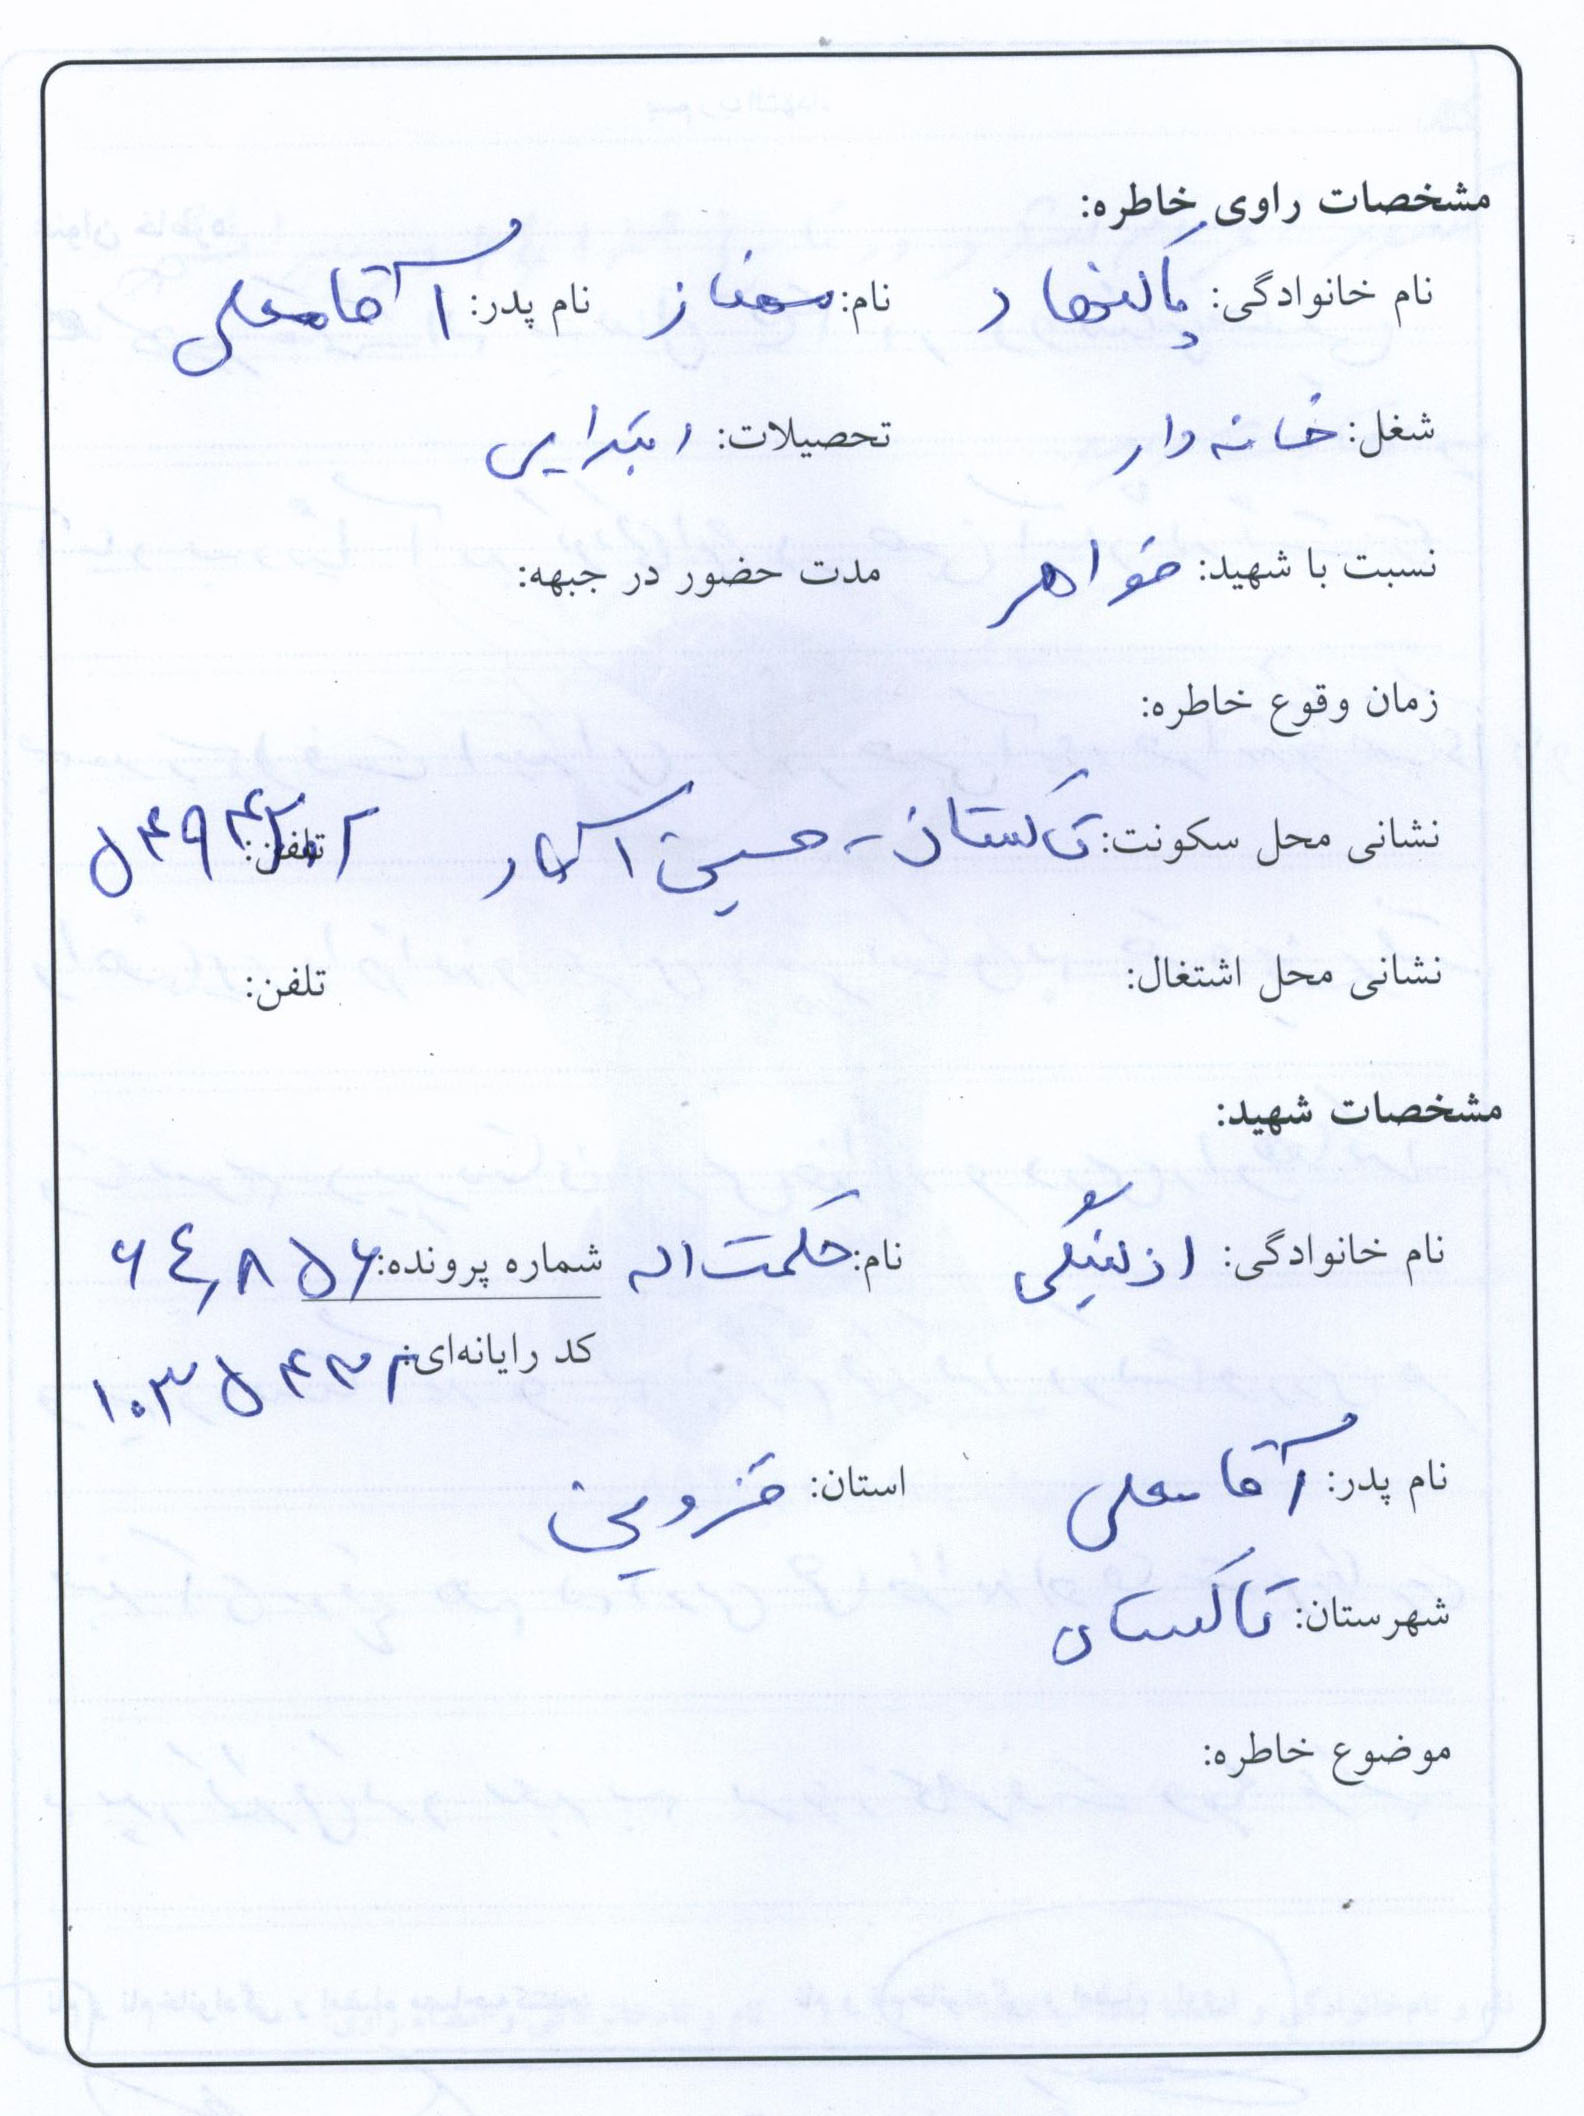 مشخصات راوی خاطره:
نام خانوادگی: پاکنهاد نام: مهناز نام پدر: آقامعلی
شغل: خانه دار تحصیلات: ابتدایی
نسبت با شهید: خواهر مدت حضور در جبهه:
زمان وقوع خاطره:
نشانی محل سکونت: تاکستان - حسین آباد تلفن:
نشانی محل اشتغال: تلفن:
مشخصات شهید:
نام خانوادگی: نام: حکمت اله شماره پرونده:
کد رایانه‌ای:
نام پدر: آقامعلی استان: قزوین
شهرستان: تاکستان
موضوع خاطره: